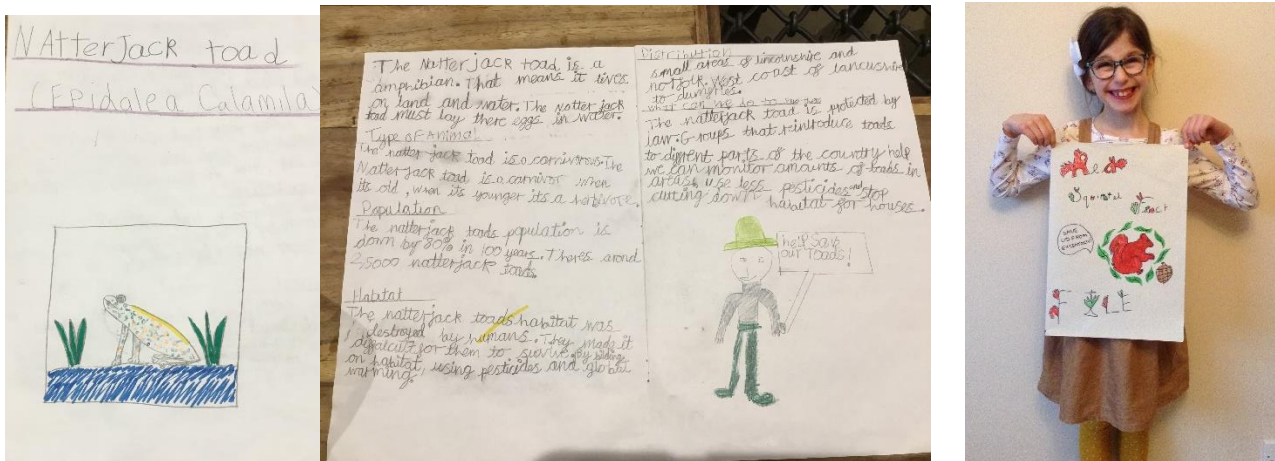 NAtterJack toad
(Epidalea Calamila)
The Natterjack toad is a
amphibian. That means it lives
on land and water. The natterjack
toad must lay there eggs in water.
Type of Animal
The natter jack toad is a carnivirous. The
Natterjack toad is a carnivor when
its old, when its younger it's a herbivore.
Population
The natterjack toads population is
down by 80% in 100 years. Theres arond
25000 natterjack toads.
Habitat
The natterjack toads habitat was
destroyed by humans. They made it
for them to survive. By
on habitat, using pesticides and global
warming.
Distribution
small areas of lincolnshire and
norfolk. West coast of lancushire
to dumfries.
what can we do to
The natterjack toad is protected by
law. Groups that reintroduce toads
to different parts of the country help
we can monitor amounts of toads in
areas, use less pesticides and stop
cutting down habitat for houses.
help save
our toads!
Red
Squirrel
Fact
SAVE
US FROM
EXTINCTION!
FILE